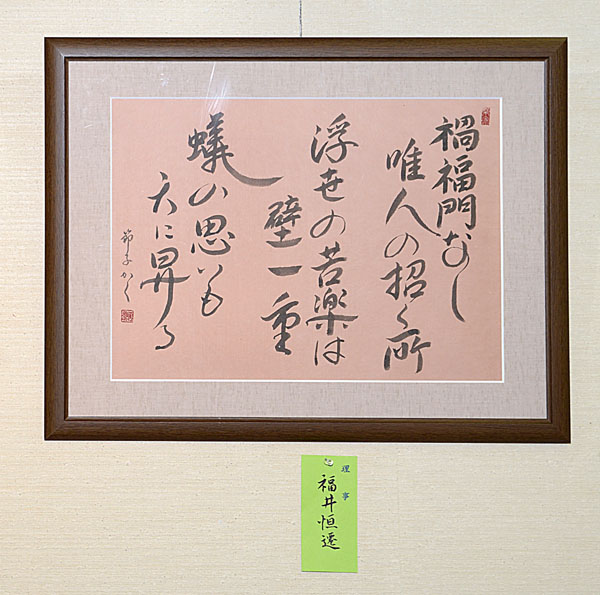 禍福門なし
唯人の招く所
浮世の苦楽は
壁一重
蟻の思いも
天に昇る
節子かく
理事
福井恒遷